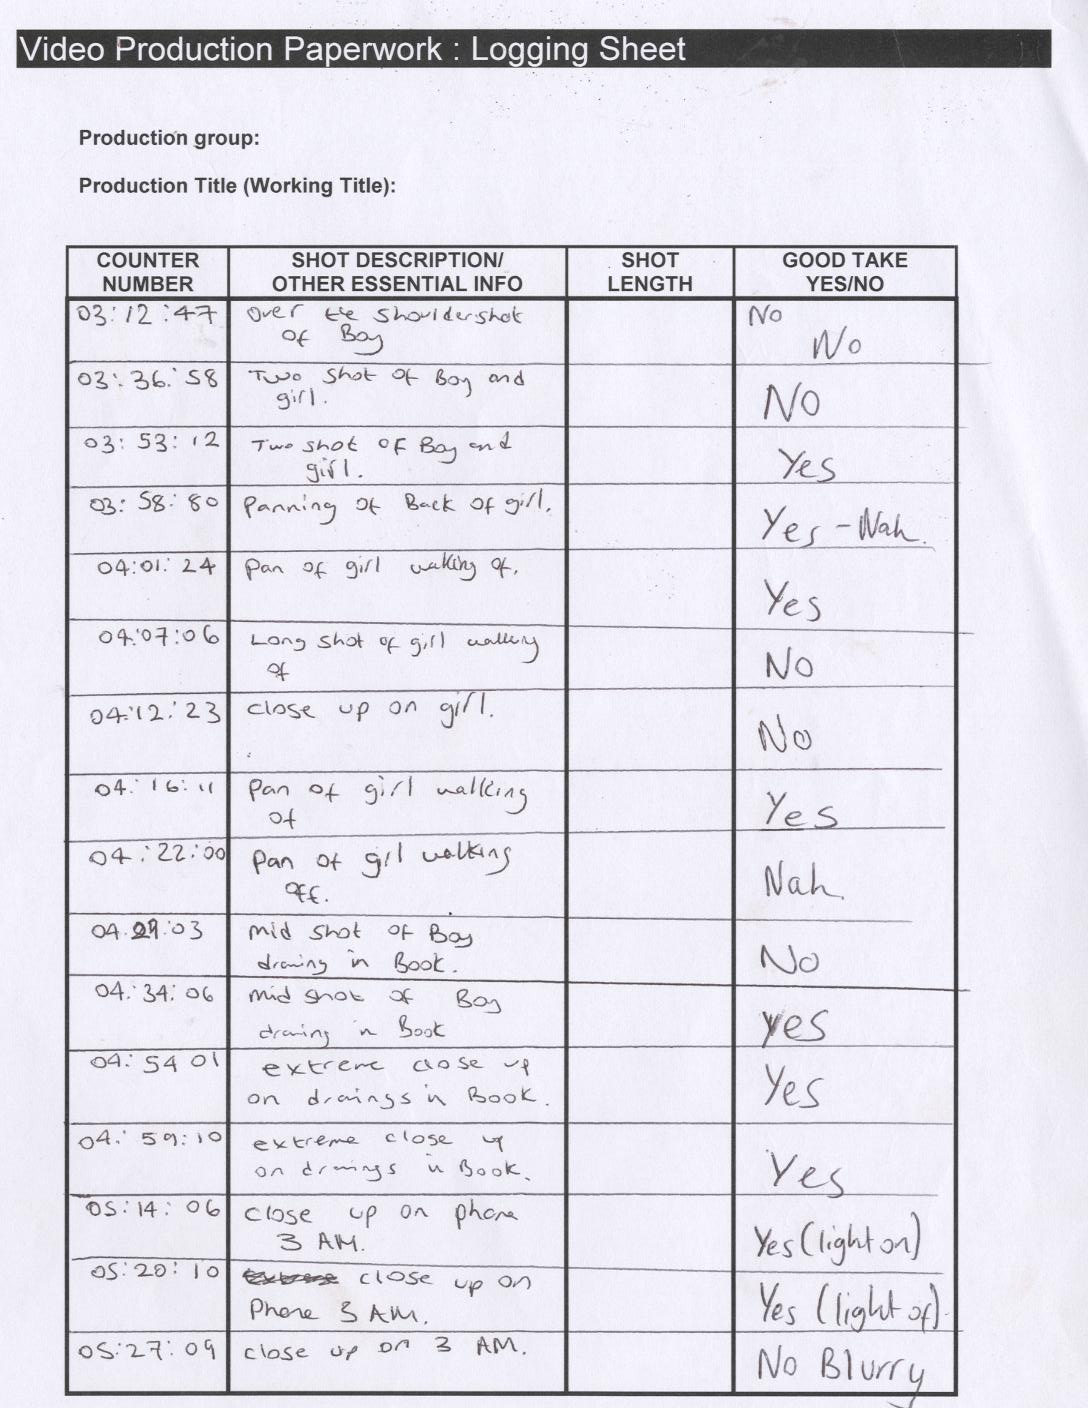 Video Production Paperwork : Logging Sheet
Production group:
Production Title (Working Title):
COUNTER NUMBER SHOT DESCRIPTION/ OTHER ESSENTIAL INFO SHOT LENGTH GOOD TAKE YES/NO
03:12:47 Over the Shoulder shot No
of Boy No
03:36:58 Two Shot of Boy and
girl. NO
03:53:12 Two shot of Boy and
girl. Yes
03:58:80 Panning of Back of girl. Yes - Nah.
04:01:24 Pan of girl walking of. Yes
04:07:06 Long shot of girl walking
of No
04:12:23 close up on girl. No
04:16:11 Pan of girl walking
of Yes
04:22:00 Pan of girl walking
off. Nah
04.29:03 Mid Shot of Boy
drawing in Book. No
04:34:06 Mid shot of Boy
drawing in Book yes
04:54 01 extreme close up
on drawings in Book. Yes
04:59:10 extreme close up
on drawings in Book. Yes
05:14:06 close up on phone
3 AM. Yes (light on)
05:20:10 close up on
Phone 3 AM. Yes (light of).
05:27:09 close up on 3 AM. No Blurry